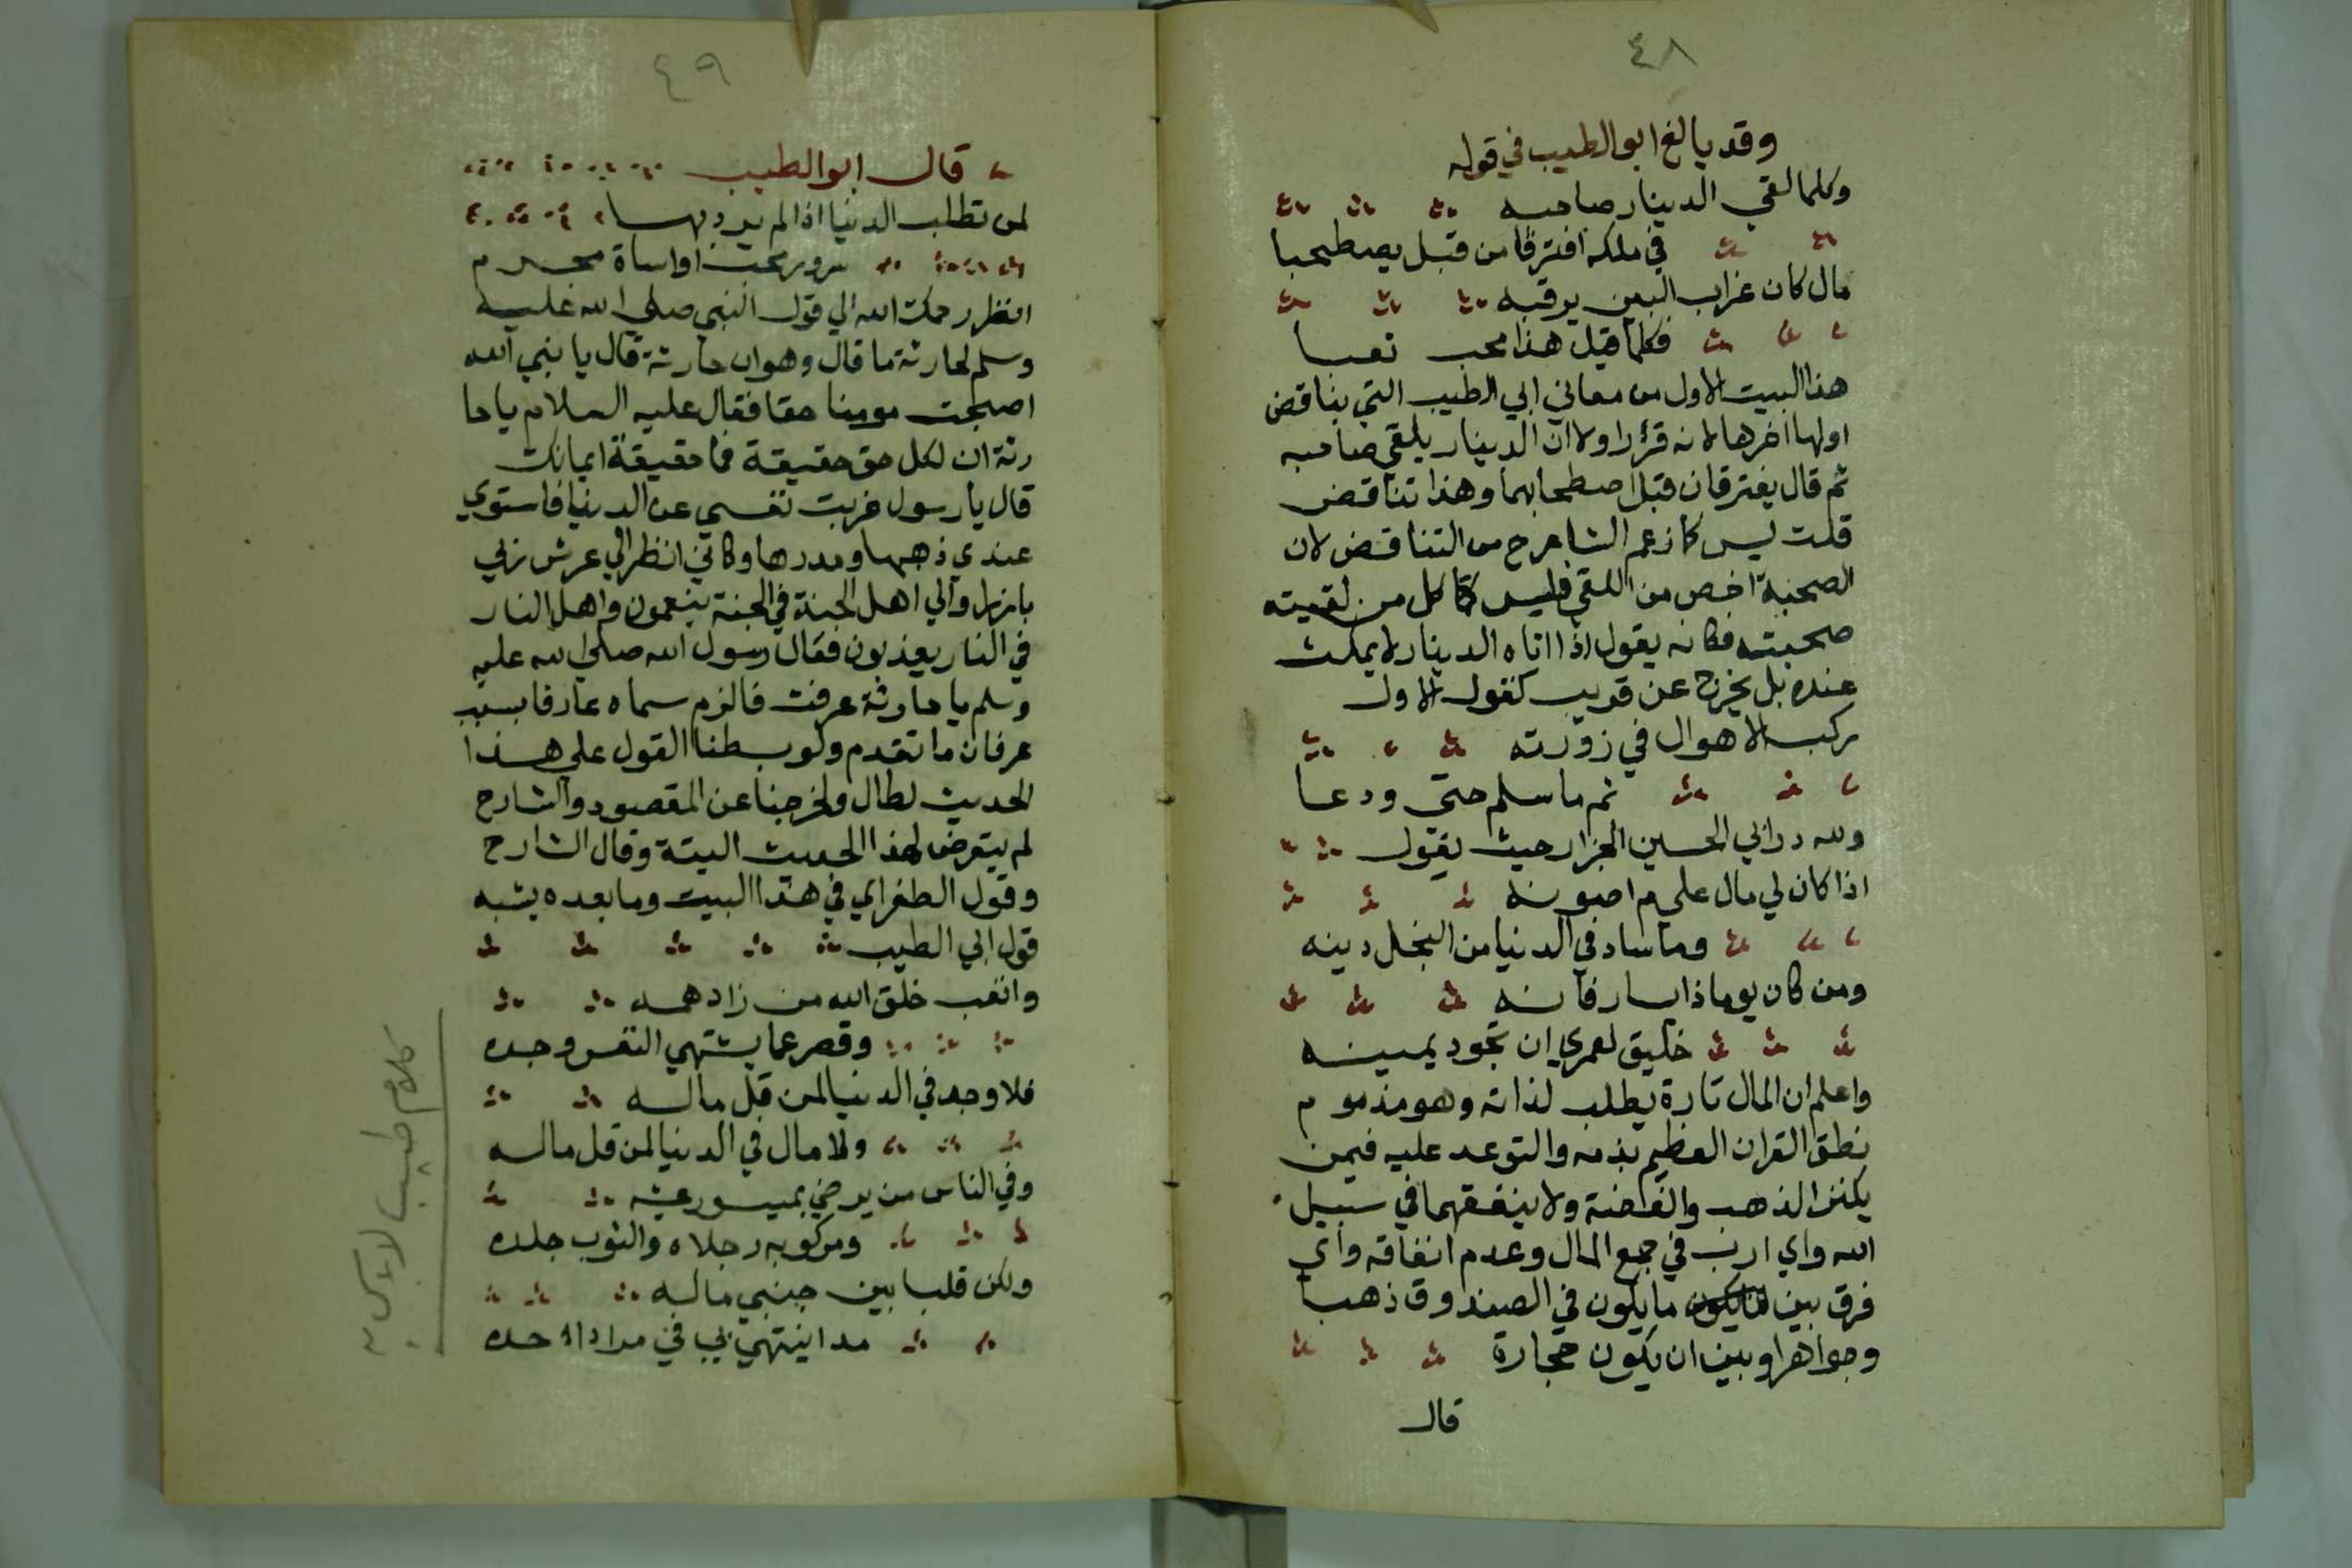 ٤٨
وقد بالغ ابو الطيب في قوله
وكلما لقي الدينار صاحبه
في ملكه افترقا من قبل يصطحبا
مال كان غراب البين يرقبه
فكلما قيل هذا محب نعبا
هذا البيت الاول من معاني ابي الطيب التي يناقض
اولها اخرها لانه قرر اولا ان الدينار يلقي صاحبه
ثم قال يفترقان قبل اصطحابهما وهذا تناقض
قلت ليس كما زعم الشارح من التناقض لان
الصحبة اخص من اللقي فليس كل من لقيته
صحبته فكانه يقول اذا اتاه الدينار لا يمكث
عنده بل يخرج عن قريب كقول الاول
ركب الاهوال في زورته
ثم ما سلم حتى ودعا
ولله در ابي الحسين الجزار حيث يقول
اذا كان لي مال علي م اصونه
وما ساد في الدنيا من البخل دينه
ومن كان يوما ذا يسار فانه
خليق لعمري ان تجود يمينه
واعلم ان المال تارة يطلب لذاته وهو مذموم
نطق القران العظيم بذمه والتوعد عليه فيمن
يكنز الذهب والفضة ولا ينفقهما في سبيل
الله واي ارب في جمع المال وعدم انفاقه واي
فرق بين ما يكون في الصندوق ذهبا
وجواهرا وبين ان يكون حجارة
قال
٤٩
قال ابو الطيب
لمن تطلب الدنيا اذا لم يرد بها
سرور محب او اساة مجرم
انظر رحمك الله الي قول النبي صلي الله عليه
وسلم لحارثة ما قال وهو ان حارثة قال يا نبي الله
اصبحت مومنا حقا فقال عليه السلام يا حا
رثة ان لكل حق حقيقة فما حقيقة ايمانك
قال يا رسول غربت نفسي عن الدنيا فاستوي
عندي ذهبها ومدرها وكاني انظر الي عرش ربي
بارزا والي اهل الجنة في الجنة ينعمون واهل النار
في النار يعذبون فقال رسول الله صلي الله عليه
وسلم يا حارثة عرفت فالزم سماه عارفا بسبب
عرفان ما تقدم ولو بسطنا القول علي هذا
الحديث لطال ولخرجنا عن المقصود والشارح
لم يتعرض لهذا الحديث البتة وقال الشارح
وقول الطغراي في هذا البيت وما بعده يشبه
قول ابي الطيب
واتعب خلق الله من زاد همه
وقصر عما يشتهي النفس وجده
فلا وجد في الدنيا لمن قل ماله
ولا مال في الدنيا لمن قل ماله
وفي الناس من يرضي بميسور عيشه
ومركوبه رجلاه والثوب جلده
ولكن قلبا بين جنبي ماله
مدا ينتهي بي في مراد احده
كلام طيب